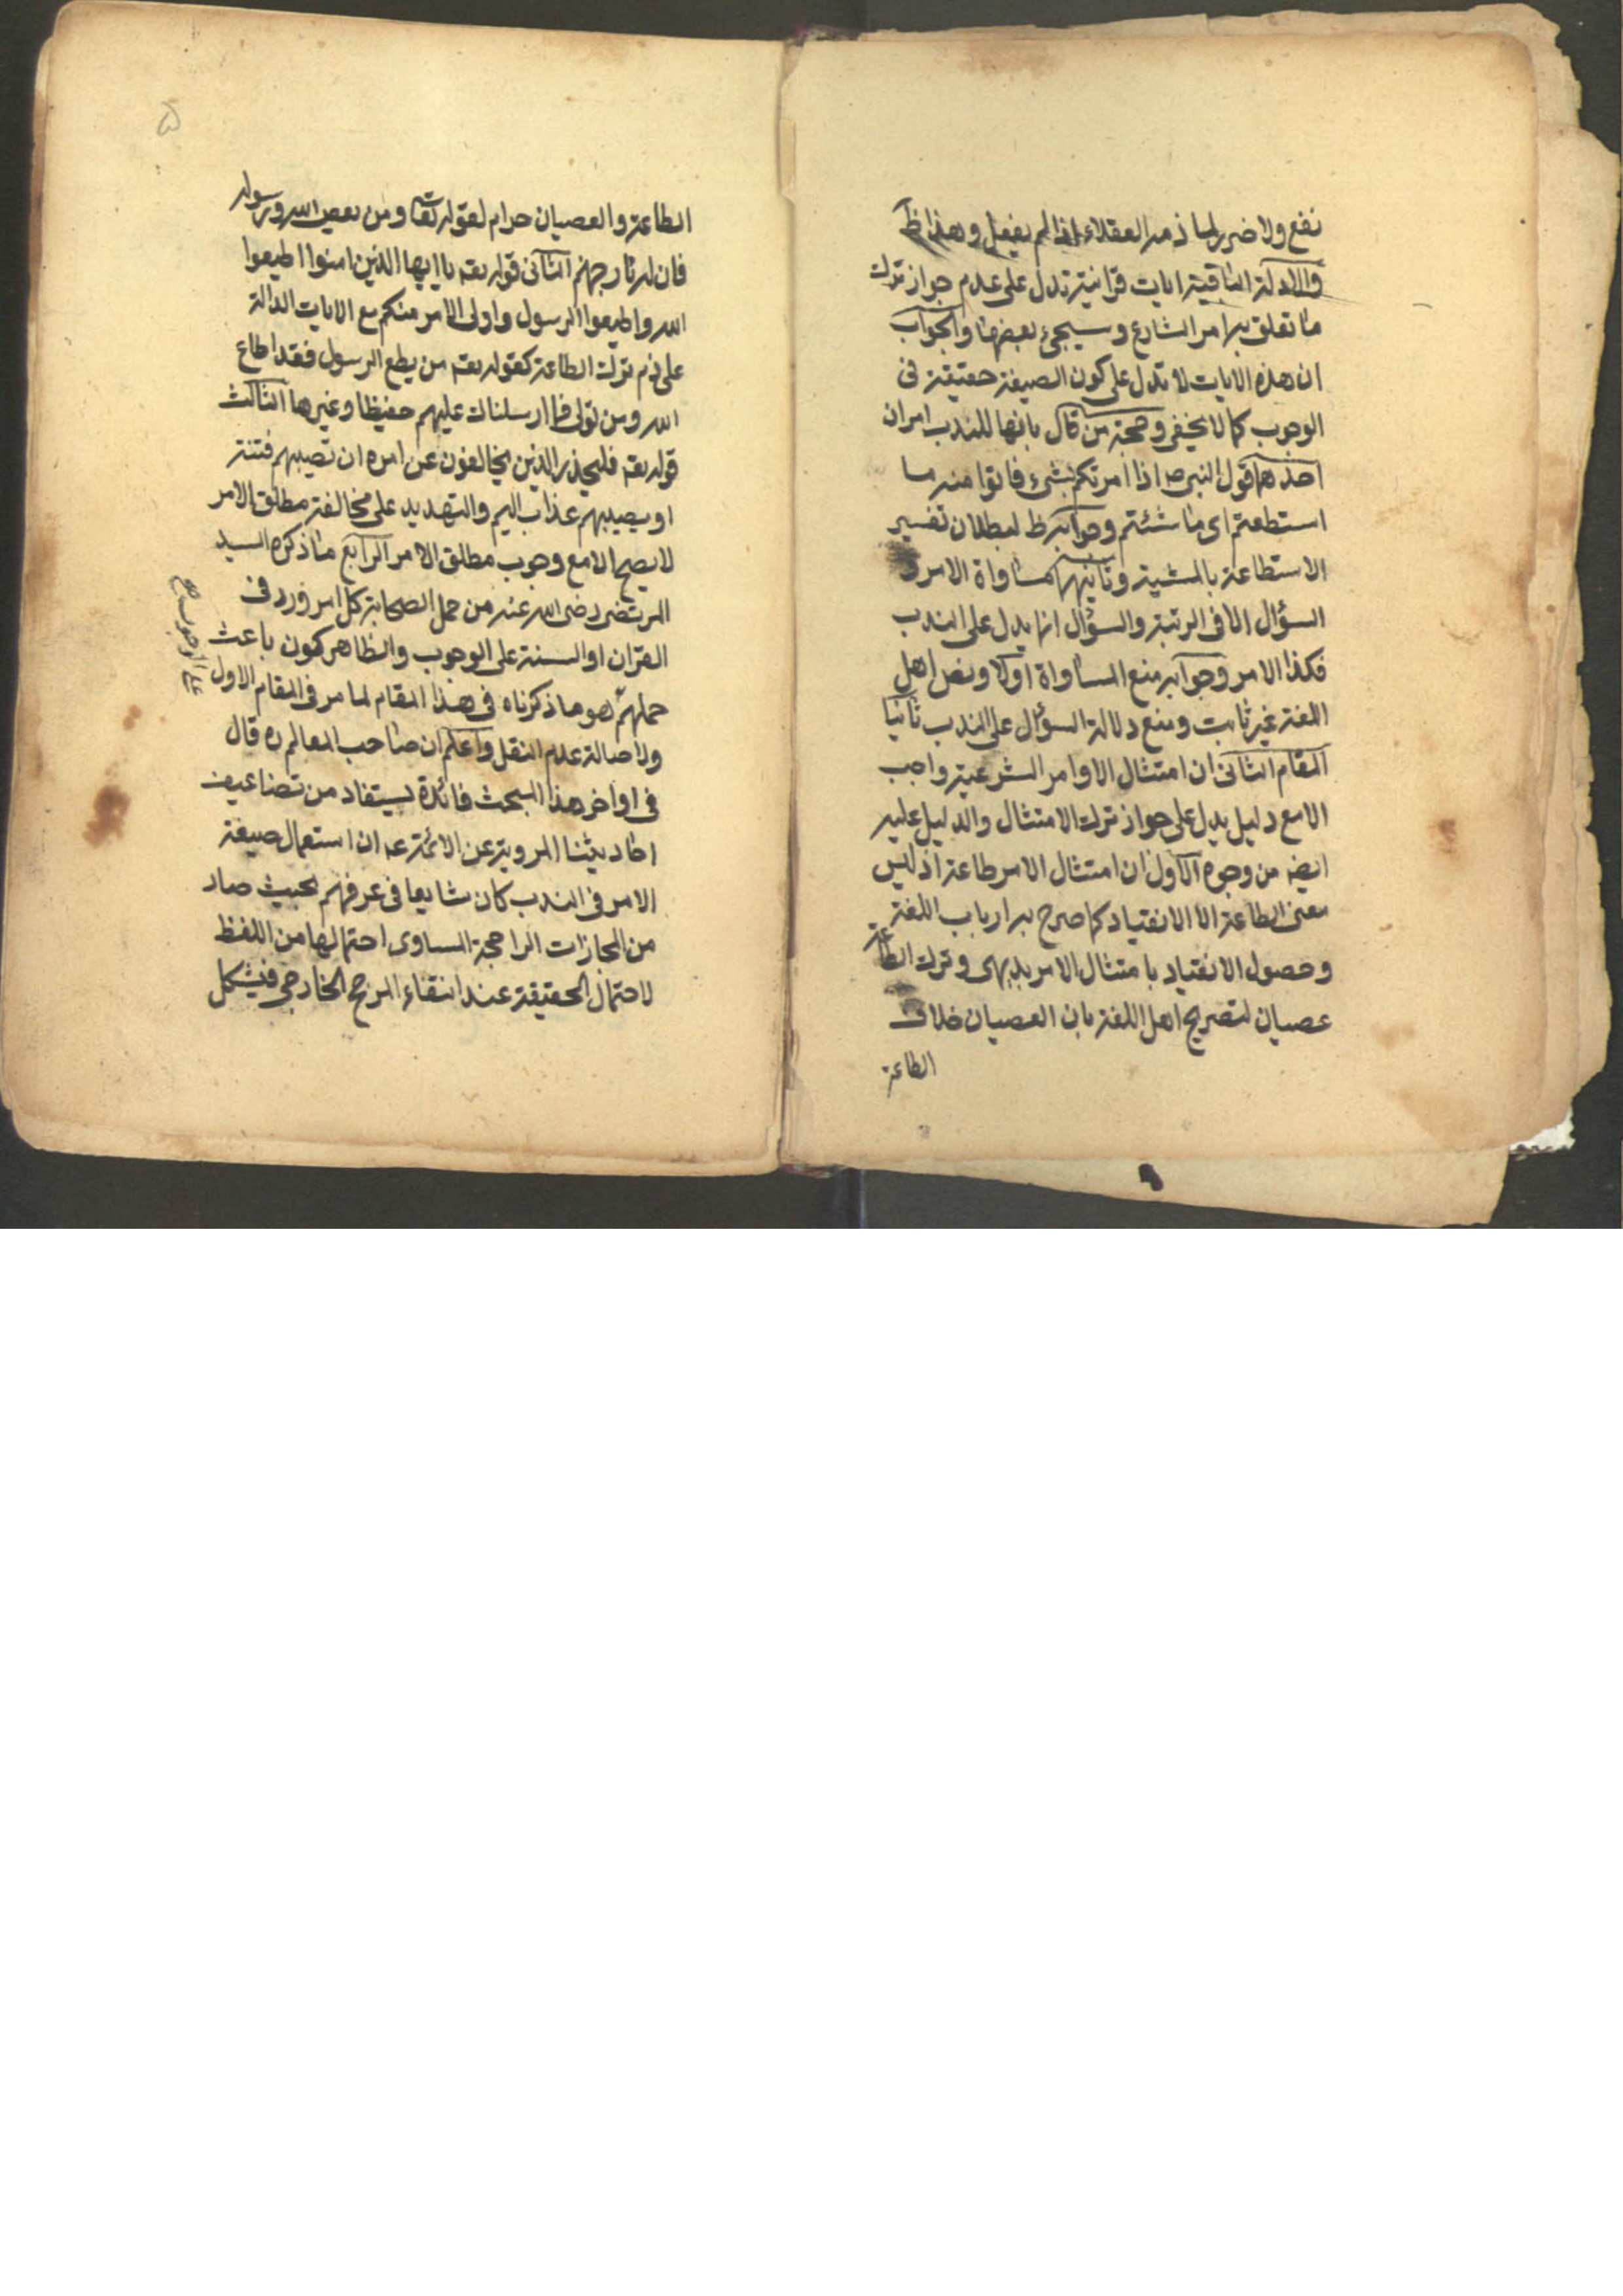 نفع ولا ضرر لما ذمه العقلاء اذا لم يفعل وهذا ظ
والادلة الباقية ايات قرانية تدل على عدم جواز ترك
ما تعلق به امر الشارع وسيجئ بعضها والجواب
ان هذه الايات لا تدل على كون الصيغة حقيقة فى
الوجوب كما لا يخفى وحجة من قال بانها للندب امران
احدهما قول النبى ص اذا امرتكم بشئ فاتوا منه ما
استطعتم اى ما شئتم وجوابه ظ لبطلان تفسير
الاستطاعة بالمشية وثانيهما مساواة الامر و
السؤال الا فى الرتبة والسؤال انما يدل على الندب
فكذا الامر وجوابه منع المساواة اولا ونص اهل
اللغة غير ثابت ومنع دلالة السؤال على الندب ثانيا
المقام الثانى ان امتثال الاوامر الشرعية واجب
الا مع دليل يدل على جواز ترك الامتثال والدليل عليه
ايضه من وجوه الاول ان امتثال الامر طاعة اذ ليس
معنى الطاعة الا الانقياد كما صرح به ارباب اللغة
وحصول الانقياد بامتثال الامر بديهى وترك الطاعة
عصيان لتصريح اهل اللغة بان العصيان خلاف
الطاعة
۵
الطاعة والعصيان حرام لقوله تعا ومن يعص الله ورسوله
فان له نار جهنم الثانى قوله تعه يا ايها الذين امنوا اطيعوا
الله واطيعوا الرسول واولى الامر منكم مع الايات الدالة
على ذم ترك الطاعة كقوله تعه من يطع الرسول فقد اطاع
الله ومن تولى فما ارسلناك عليهم حفيظا وغيرها الثالث
قوله تعه فليحذر الذين يخالفون عن امره ان تصيبهم فتنة
او يصيبهم عذاب اليم والتهديد على مخالفة مطلق الامر
لا يصح الا مع وجوب مطلق الامر الرابع ما ذكره السيد
المرتضى رضى الله عنه من حمل الصحابة كل امر ورد فى
القران او السنة على الوجوب والظاهر كون باعث
على الوجوب صح
حملهم هو ما ذكرناه فى هذا المقام لما مر فى المقام الاول
ولاصالة عدم النقل واعلم ان صاحب المعالم ره قال
فى اواخر هذا المبحث فائدة يستفاد من تضاعيف
احاديثنا المروية عن الائمة عه ان استعمال صيغة
الامر فى الندب كان شايعا فى عرفهم بحيث صار
من المجازات الراجحة المساوى احتمالها من اللفظ
لاحتمال الحقيقة عند انتفاء المرجح الخارجى فيشكل